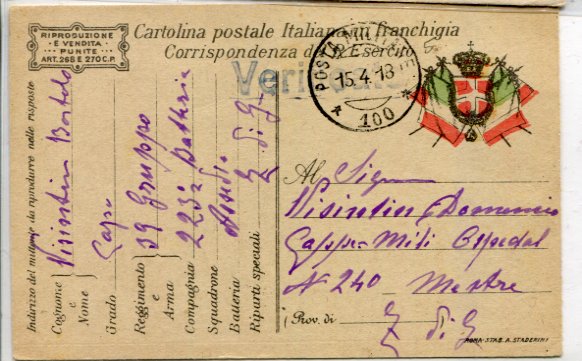 RIPRODUZIONE
E VENDITA
PUNITE
ART. 268 E 270 C.P.
Cartolina postale Italiana in franchigia
Corrispondenza del R. Esercito
POSTA MILITARE
15.4.18
100
Indirizzo del mittente da riprodurre nelle risposte
Cognome e Nome Visintin Bortolo
Grado Cap.
Reggimento e Arma 39 Gruppo
Compagnia 223a Batteria
Squadrone
Batteria
Riparti speciali Z di G
Al Sig
Visintin Domenico
Ospedal
N 240 Mestre
(Prov. di Z di G
ROMA-STAB. A. STADERINI